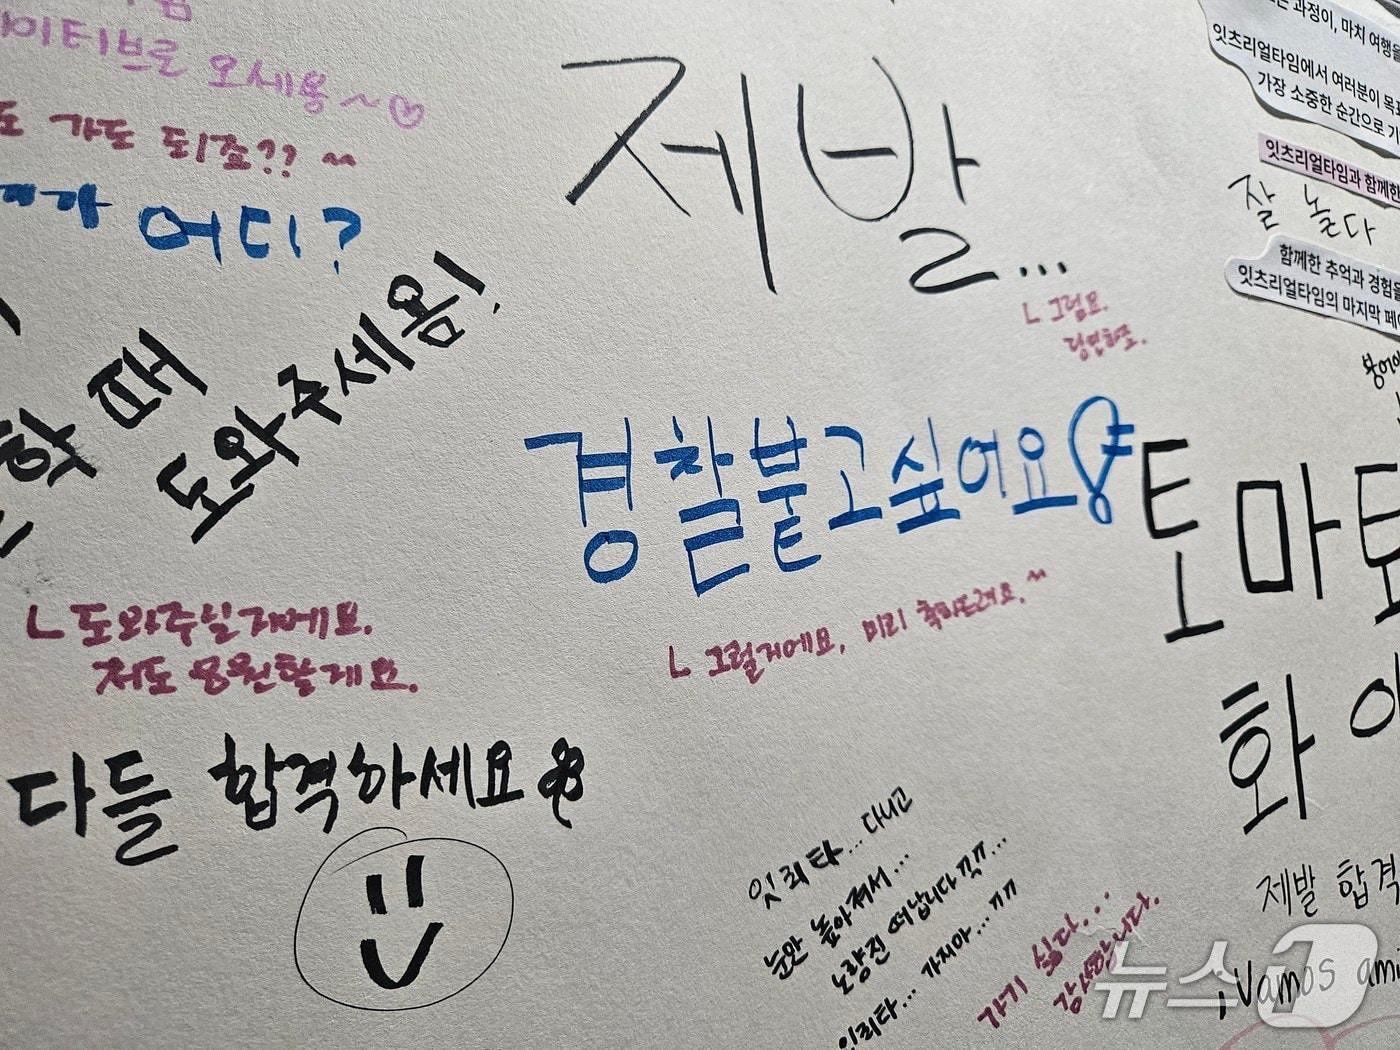 이티브로 오세용~♡
도 가도 되죠?? ~
어디?
때
도와주세용!
ㄴ 도와주실거예요.
저도 응원할게요.
다들 합격하세요
제발...
ㄴ 그럼요.
당연하죠.
경찰붙고싶어요
ㄴ 그럴거에요, 미리 축하드려요.~
잇리타... 다니고
눈만 높아져서...
노량진 떠납니다 끅ㅠ...
잇리타... 가지마...ㄲㄲ
가기 싫다...
감사합니다.
과정이, 마치 여행을
잇츠리얼타임에서 여러분이 목표
가장 소중한 순간으로 기
잇츠리얼타임과 함께한
잘 놀다
함께한 추억과 경험을
잇츠리얼타임의 마지막 페이
토마토
화이
제발 합격
¡Vamos ami
뉴스1